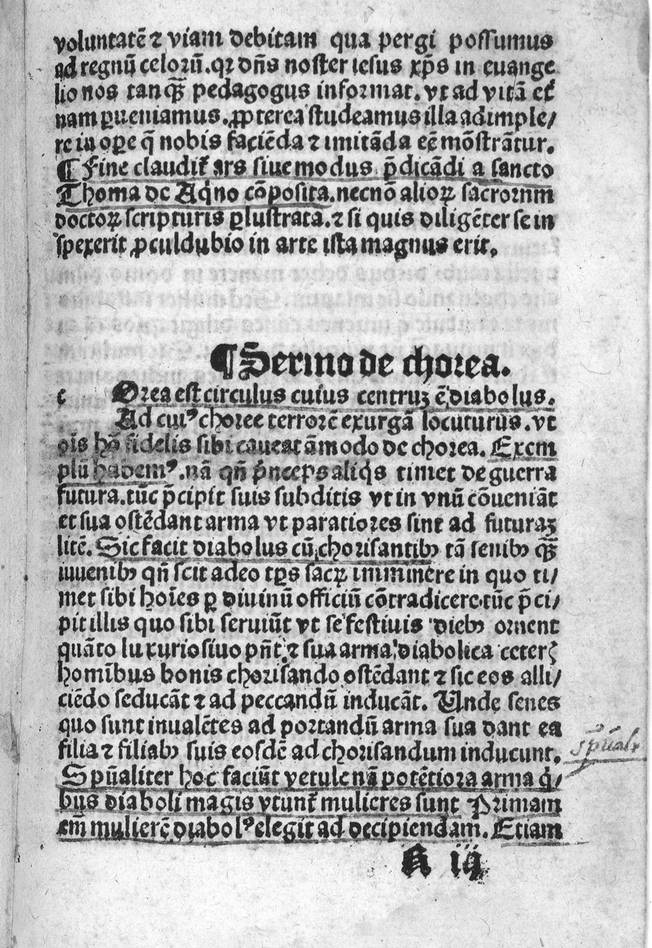 voluntatē ⁊ viam debitam qua pergi possumus
ad regnū celorū. qꝛ dn̄s noster iesus xp̄s in euange
lio nos tanq̄ꝫ pedagogus informat. vt ad vitā et̄
nam ꝑueniamus. ꝓpterea studeamus illa adimple/
re in oꝑe q̄ nobis faciēda ⁊ imitāda eē mōstrātur.
¶ Fine claudit᷑ ars siue modus p̄dicādi a sancto
Thoma de Aq̄no cōposita. necnō alioꝝ sacrorum
doctoꝝ scripturis ꝑlustrata. ⁊ si quis diligēter se in
spexerit ꝓculdubio in arte ista magnus erit.
¶ Sermo de chorea.
c Orea est circulus cuius centruꝫ ē diabolus.
Ad cuiꝰ choree terrorē exurgā locuturus. vt
oīs hō fidelis sibi caueat āmodo de chorea. Exem
plū habemꝰ. nā qn̄ p̄nceps aliq̄s timet de guerra
futura. tūc p̄cipit suis subditis vt in vnū cōueniāt
et sua ostēdant arma vt paratiores sint ad futuraꝫ
litē. Sic facit diabolus cū chorisantibꝫ tā senibꝫ q̄ꝫ
iuuenibꝫ qn̄ scit adeo tp̄s sacꝝ imminere in quo ti/
met sibi hoīes ꝑ diuinū officiū cōtradicere. tūc p̄ci/
pit illis quo sibi seruiūt vt se festiuis diebꝫ ornent
quāto luxuriosiuo pn̄t ⁊ sua arma diabolica ceterꝭ
hominibus bonis chorisando ostēdant ⁊ sic eos alli/
ciēdo seducāt ⁊ ad peccandū inducāt. Unde senes
quo sunt inualētes ad portandū arma sua dant ea
filia ⁊ filiabꝫ suis eosdē ad chorisandum inducunt.
Spūaliter hoc faciūt vetule nā potētiora arma q̄/
bus diaboli magis vtunt᷑ mulieres sunt Primam
em̄ mulierē diabolꝰ elegit ad decipiendam. Etiam
spūalr
A iij